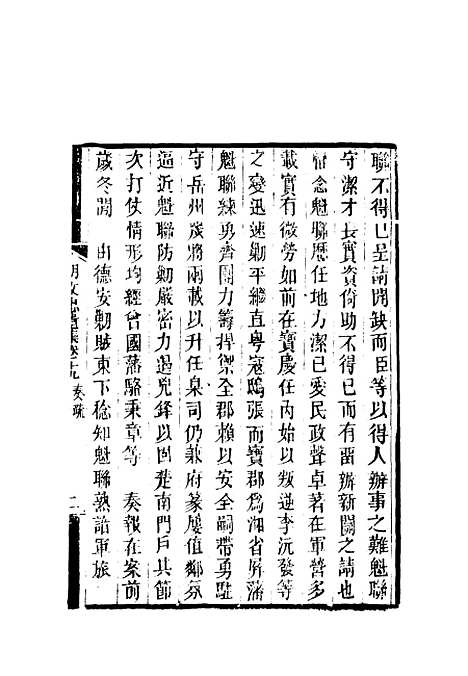 聯不得已呈請開缺而臣等以得人辦事之難魁聯
守潔才長實資倚助不得已而有留辦新關之請也
竊念魁聯歷任地方潔已愛民政聲卓著在軍營多
載實有微勞如前在寶慶任內始以叛逆李沅發等
之變迅速勦平繼直粵寇鴟張而寶郡爲湘省屏藩
魁聯練勇齊團力籌捍禦全郡賴以安全嗣帶勇駐
守岳州幾將兩載以升任臬司仍兼府篆屢值鄰氛
逼近魁聯防勦嚴密力遏兇鋒以固楚南門戶其節
次打仗情形均經曾國藩駱秉章等 奏報在案前
歲冬間 由德安勦賊東下稔知魁聯熟諳軍旅
胡文忠公遺集卷十九 奏疏 二